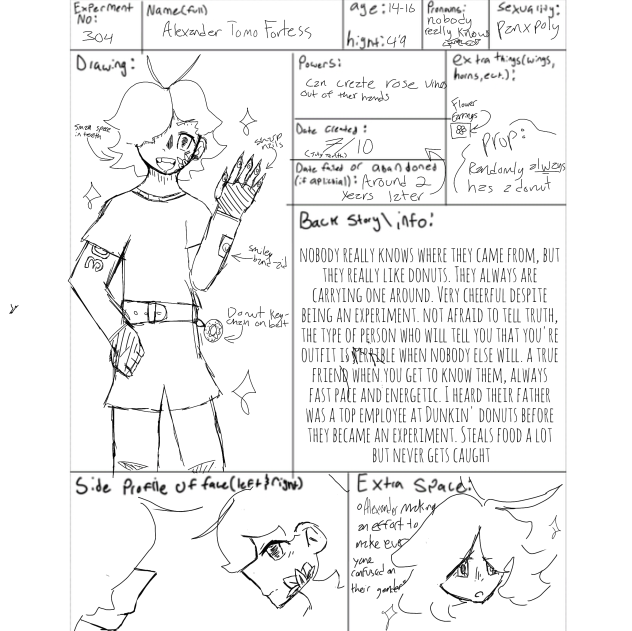 Experment
No:
304
Name(full)
Alexander Tomo Fortess
age: 14-16
hight: 4'9
Pronouns:
nobody
really knows
Sexuality:
Panxpoly
Drawing:
Small space
in teeth
Sharp
nails
smiley
band-aid
Donut key-
chain on belt
304
Powers:
Can create rose vines
out of ther hands
Date created:
7/10
Date failed or abandoned
(if aplicable): Around 2
years later
extra things(wings,
horns,ect.):
Flower
Earrings
Prop:
Randomly always
has a donut
Back Story\info:
NOBODY REALLY KNOWS WHERE THEY CAME FROM, BUT
THEY REALLY LIKE DONUTS. THEY ALWAYS ARE
CARRYING ONE AROUND. VERY CHEERFUL DESPITE
BEING AN EXPERIMENT. NOT AFRAID TO TELL TRUTH,
THE TYPE OF PERSON WHO WILL TELL YOU THAT YOU'RE
OUTFIT IS TERRIBLE WHEN NOBODY ELSE WILL. A TRUE
FRIEND WHEN YOU GET TO KNOW THEM, ALWAYS
FAST PACE AND ENERGETIC. I HEARD THEIR FATHER
WAS A TOP EMPLOYEE AT DUNKIN' DONUTS BEFORE
THEY BECAME AN EXPERIMENT. STEALS FOOD A LOT
BUT NEVER GETS CAUGHT
Side Profile of face(left&right)
Extra Space:
Alexander making
an effort to
make every
yone
confused on
their gender